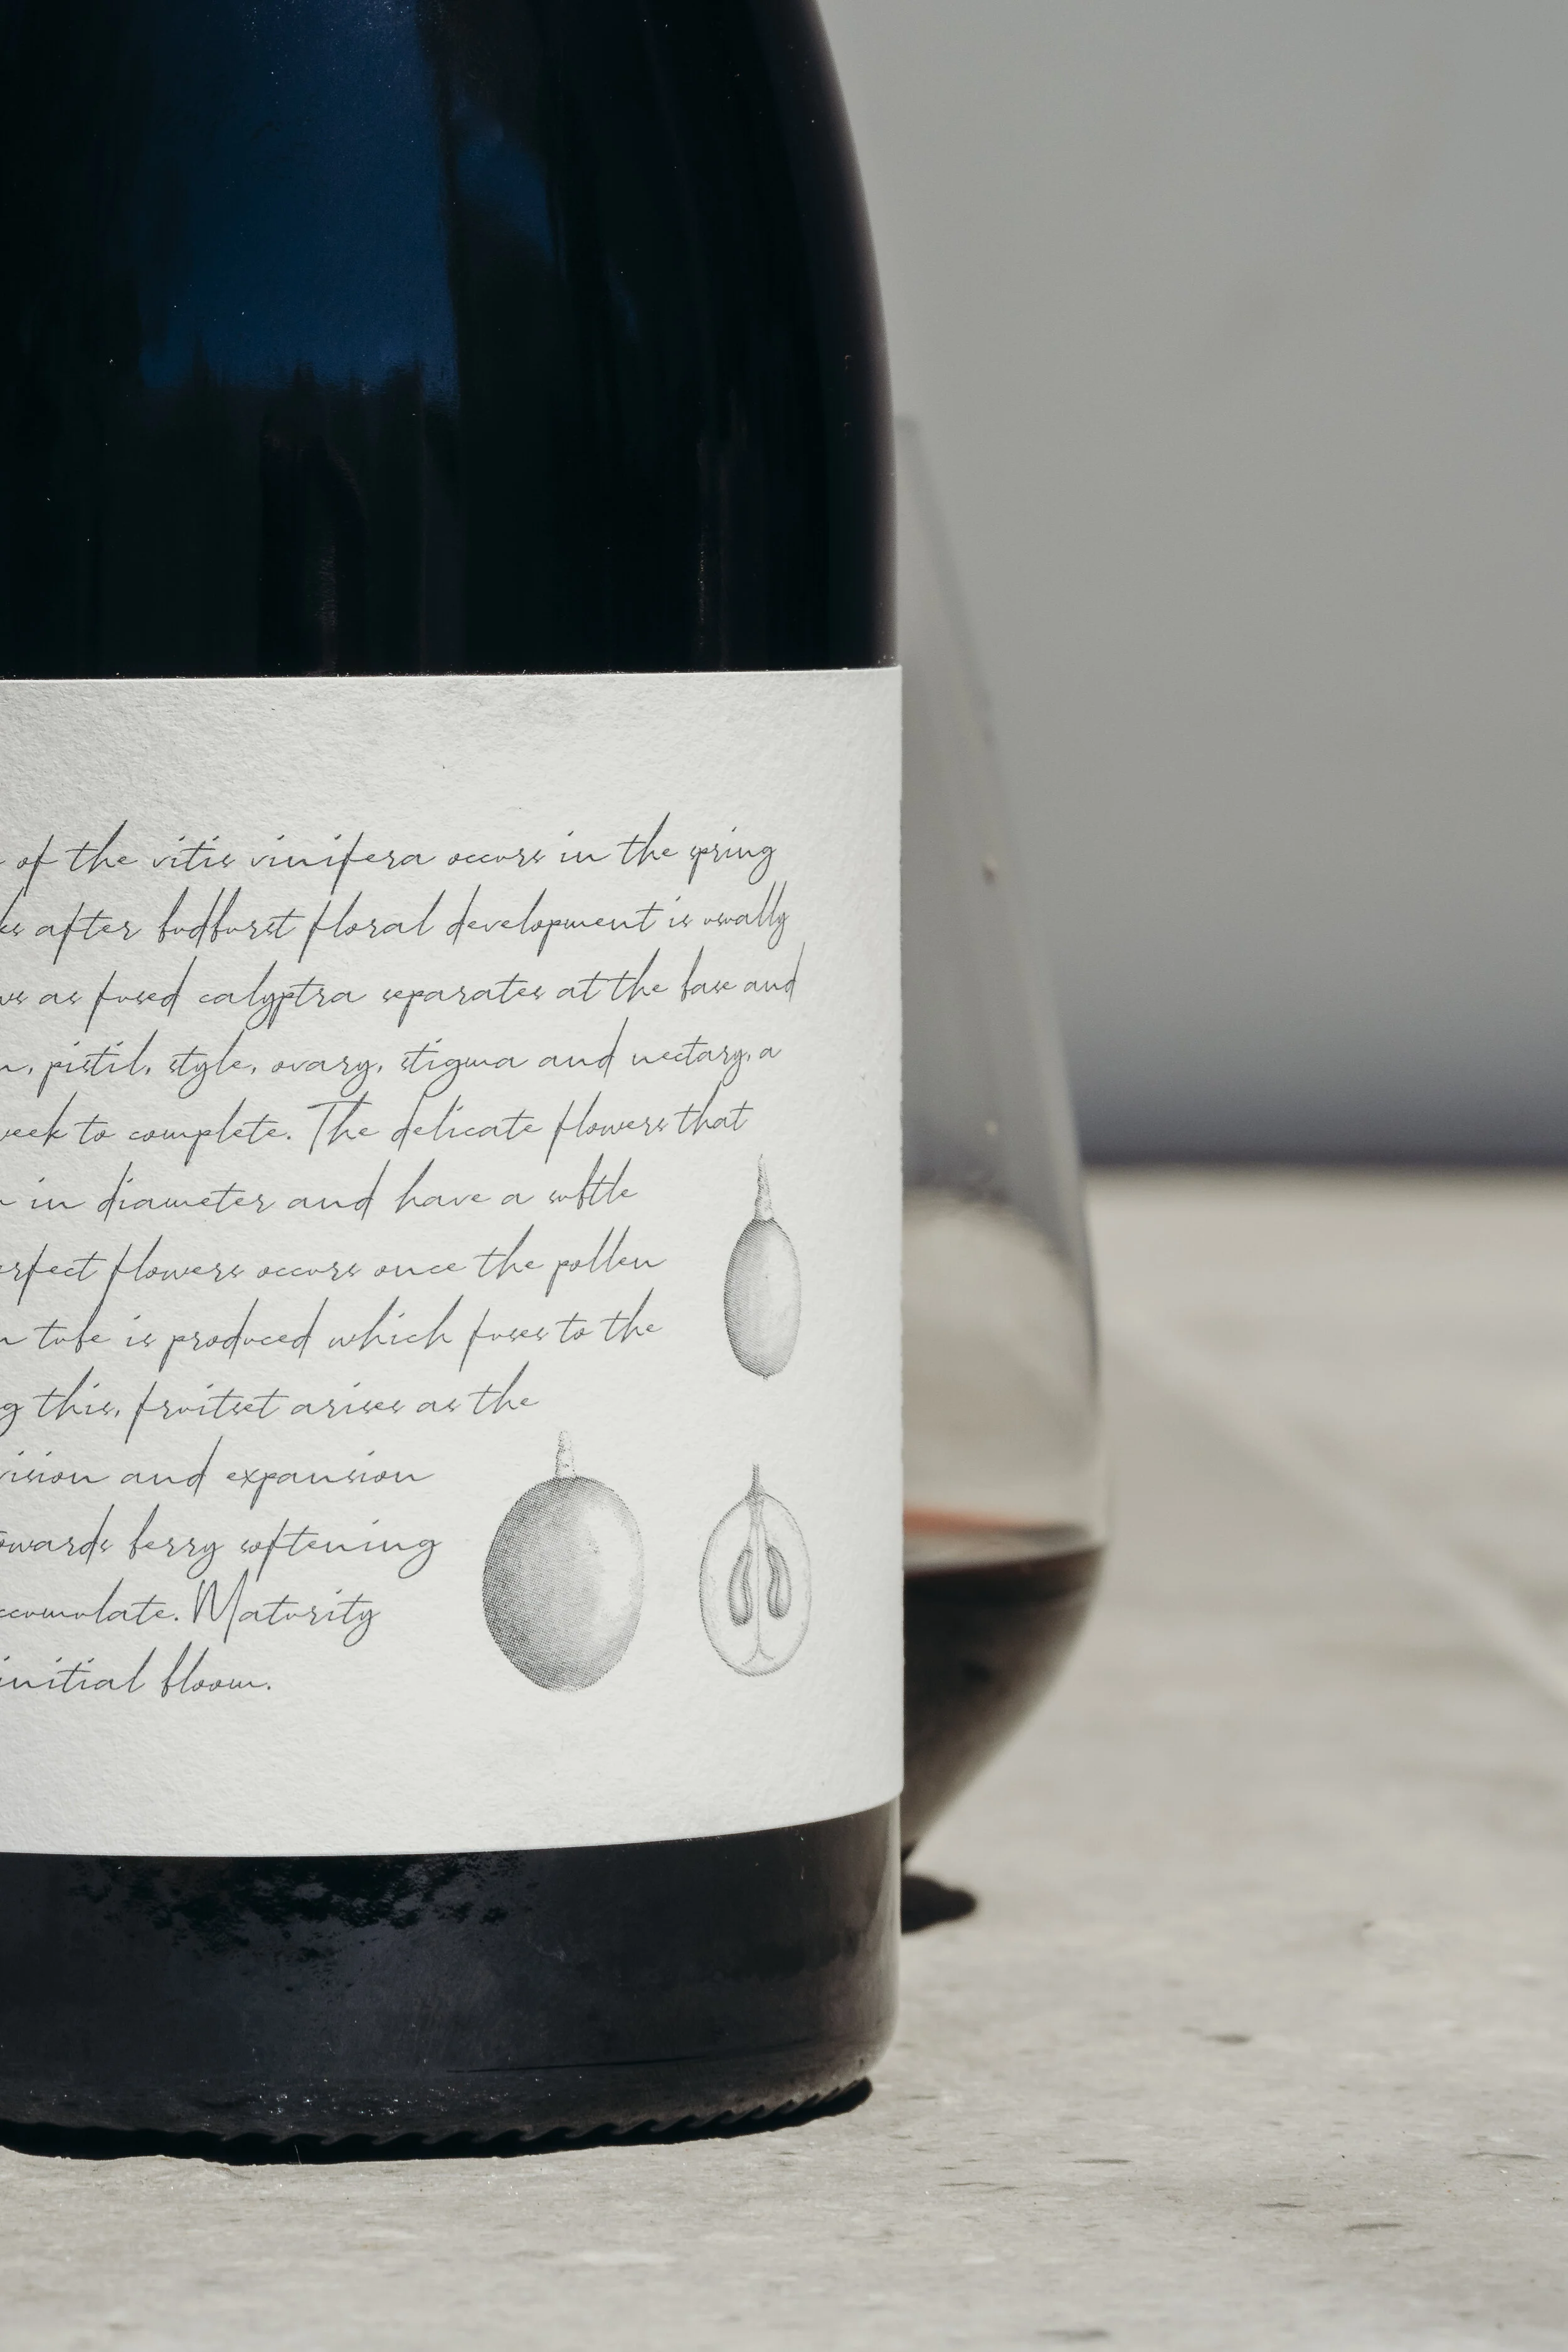 of the vitis vinifera occurs in the spring
after budburst floral development is usually
as fused calyptra separates at the base and
pistil, style, ovary, stigma and nectary, a
week to complete. The delicate flowers that
in diameter and have a subtle
erfect flowers occurs once the pollen
tube is produced which fuses to the
g this, fruitset arises as the
vision and expansion
owards berry softening
ccumulate. Maturity
initial bloom.